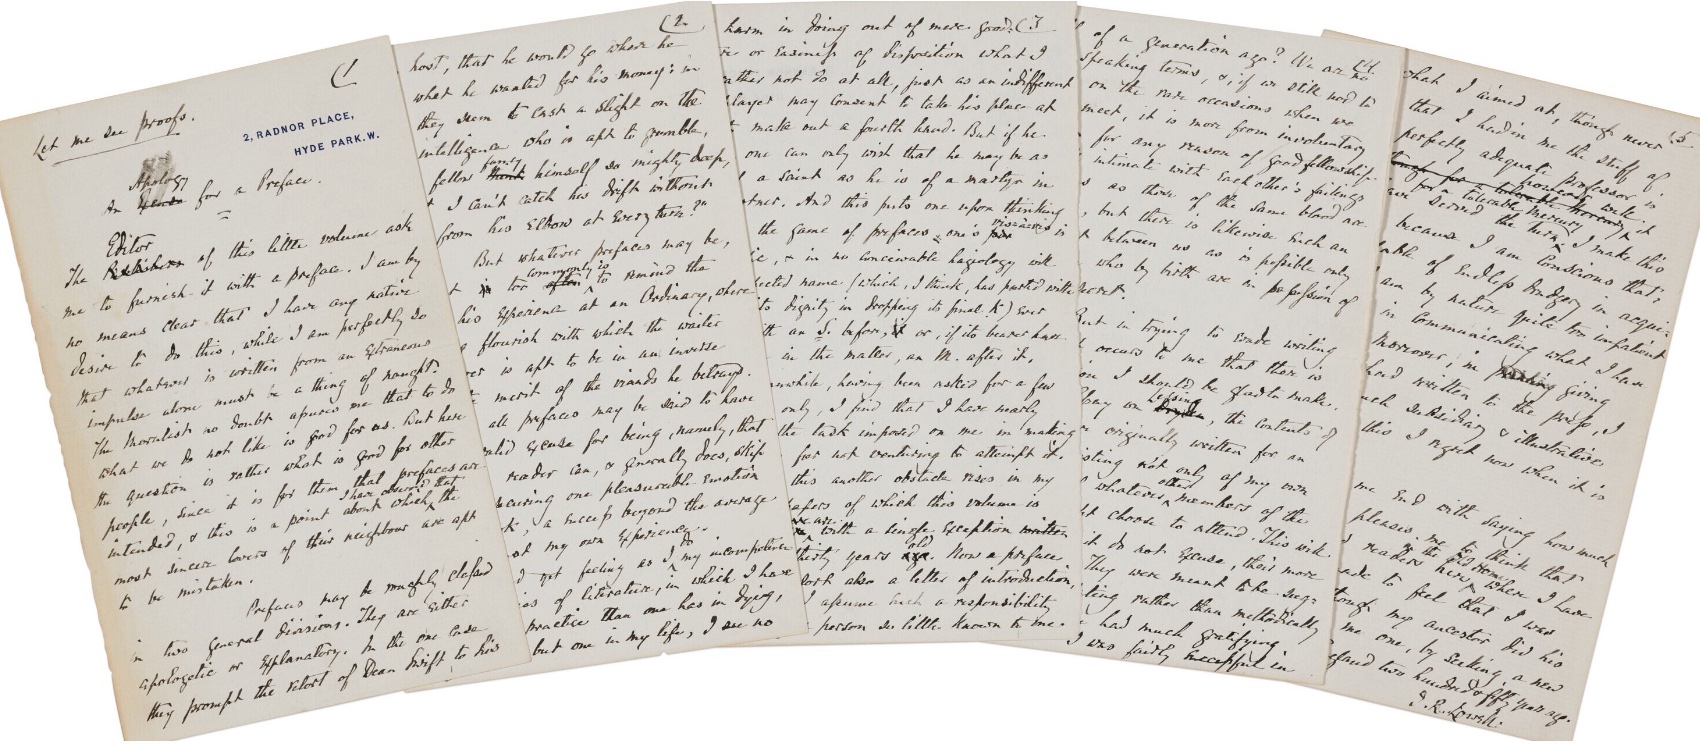 (1
Let me see proofs.
2, RADNOR PLACE,
HYDE PARK. W.
Apology
An for a Preface.
Editor
The Publishers of this little volume ask
me to furnish it with a preface. I am by
no means clear that I have any native
desire to do this, while I am perfectly so
that whatever is written from an extraneous
impulse alone must be a thing of nought.
The Moralist no doubt assures me that to do
what we do not like is good for us. But here
the question is rather what is good for other
people, since it is for them that prefaces are
intended, & this is a point about which, the
I have observed that
most sincere lovers of their neighbour are apt
to be mistaken.
Prefaces may be roughly classed
in two general divisions. They are either
apologetic or explanatory. In the one case
they prompt the retort of Dean Swift to his
(2
host, that he would go where he
what he wanted for his money: in
they seem to cast a slight on the
intelligence who is apt to grumble,
fellow think himself so mighty deep,
fancy
I can't catch his drift without
from his elbow at every turn?"
But whatever prefaces may be,
too often to remind the
commonly is
his experience at an Ordinary, where
flourish with which the waiter
is apt to be in an inverse
merit of the viands he betrays.
all prefaces may be said to have
valid excuse for being, namely, that
reader can, & generally does, skip
securing one pleasurable emotion
, a success beyond the average
of my own experience.
yet feeling as I do my incompetence
of literature, in which I have
practice than one has in dying,
but one in my life, I see no
(3
harm in doing out of mere good
or easiness of disposition what I
rather not do at all, just as an indifferent
player may consent to take his place at
make out a fourth hand. But if he
one can only wish that he may be as
a saint as he is of a martyr in
partner. And this puts one upon thinking
the game of prefaces one's is
vis a vis
, & in no conceivable hagiology will
name (which, I think, has parted with
its dignity in dropping its final k) ever
with an S. before, or, if its bearer have
in the matter, an M. after it.
Meanwhile, having been asked for a few
only, I find that I have nearly
the task imposed on me in making
for not venturing to attempt it.
this another obstacle rises in my
papers of which this volume is
with a single exception written
are
thirty years ago. Now a preface
old
sort also a letter of introduction,
I assume such a responsibility
person so little known to me.
(4
of a generation ago? We are no
speaking terms, &, if we still nod to
on the rare occasions when we
meet, it is more from involuntary
for any reason of goodfellowship.
intimate with each other's failings
as those of the same blood are
, but there is likewise such an
between us as is possible only
who by birth are in possession of
secret.
But in trying to evade writing
it occurs to me that there is
one I should be glad to make.
Essay on Dryden, the contents of
Lessing
originally written for an
consisting not only of my own
whatever members of the
other
might choose to attend. This will
it do not excuse, their more
They were meant to be sug-
gesting rather than methodically
had much gratifying
I was fairly successful in
(5
what I aimed at, though never
that I had in me the stuff of
perfectly adequate professor is
a tolerable Mercury
have served the turn, I make this
because I am conscious that,
capable of endless drudgery in acqui-
am by nature quite too impatient
in communicating what I have
Moreover, in printing giving
had written to the press, I
much subsidiary & illustrative
this I regret now when it is
me end with saying how much
pleases me to think that
readers in the old home
here where I have
made to feel that I was
though my ancestor did his
me one, by seeking, a new
two hundred & fifty years ago.
J. R. Lowell.